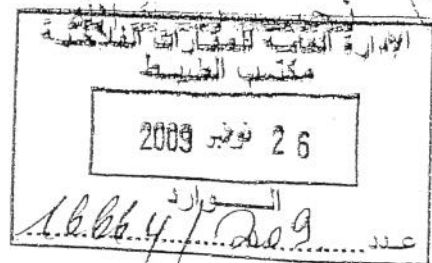 الإدارة العامة للعقارات الفلاحية
مكتب الضبط
2 6 نوفمبر 2009
الـــوارد
عـدد 16664/2009